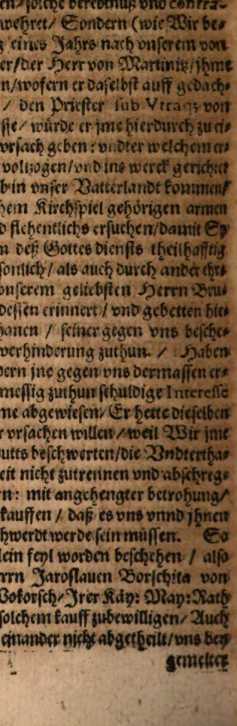 en/solche beredtnuß vnd contra-
wehret/ Sondern (wie Wir be-
eines Jahrs nach vnserem von
er/der Herr von Martinitz/jhme
n/wofern er daselbst auff gedach-
/ den Priester sub Vtraq; von
sie/würde er jme hierdurch zu ei-
vrsach geben: vndter welchem er-
vollzogen/vnd ins werck gerichtet
b in vnser Vatterlandt kommen/
hem Kirchspiel gehörigen armen
d flehentlichs ersuchen/damit Sy
n deß Gottesdiensts theilhafftig
sonlich/als auch durch andere ehr-
vnserem geliebsten Herrn Bru-
dessen erinnert/vnd gebetten hie-
hanen / seiner gegen vns besche-
verhinderung zuthun. / Haben
dern jne gegen vns dermassen er-
messig zuthun schuldige Interesse
ne abgewiesen/Er hette dieselben
r vrsachen willen/weil Wir jme
utts beschwerten/die Vndtertha-
eit nicht zutrennen vnd abschreg-
n: mit angehengter betrohung/
kauffen / daß es vns vnnd jhnen
chwerdt werde sein müssen. So
lein feyl worden beschehen / also
rrn Jaroslauen Borschita von
Vokorsch/Jrer Käy: May: Rath
solchem kauff zubewilligen/Auch
einander nicht abgetheilt/vns bey
gemelter